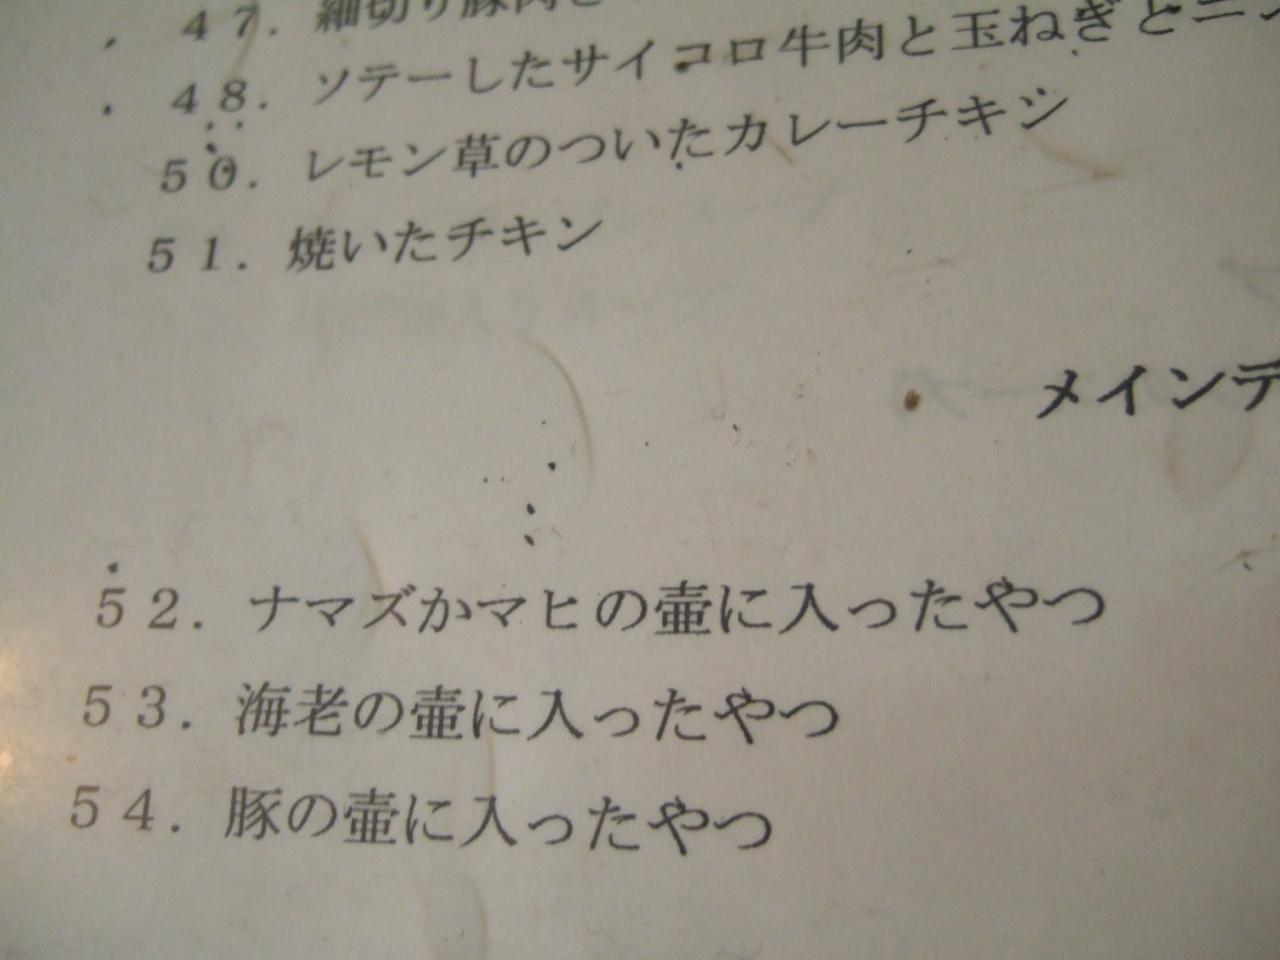 47. 細切り豚肉と
48. ソテーしたサイコロ牛肉と玉ねぎとニン
50. レモン草のついたカレーチキジ
51. 焼いたチキン
メインデ
52. ナマズかマヒの壷に入ったやつ
53. 海老の壷に入ったやつ
54. 豚の壷に入ったやつ